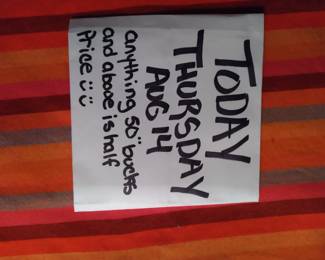 TODAY
THURSDAY
AUG 14
anything 50 bucks
and above is half
Price